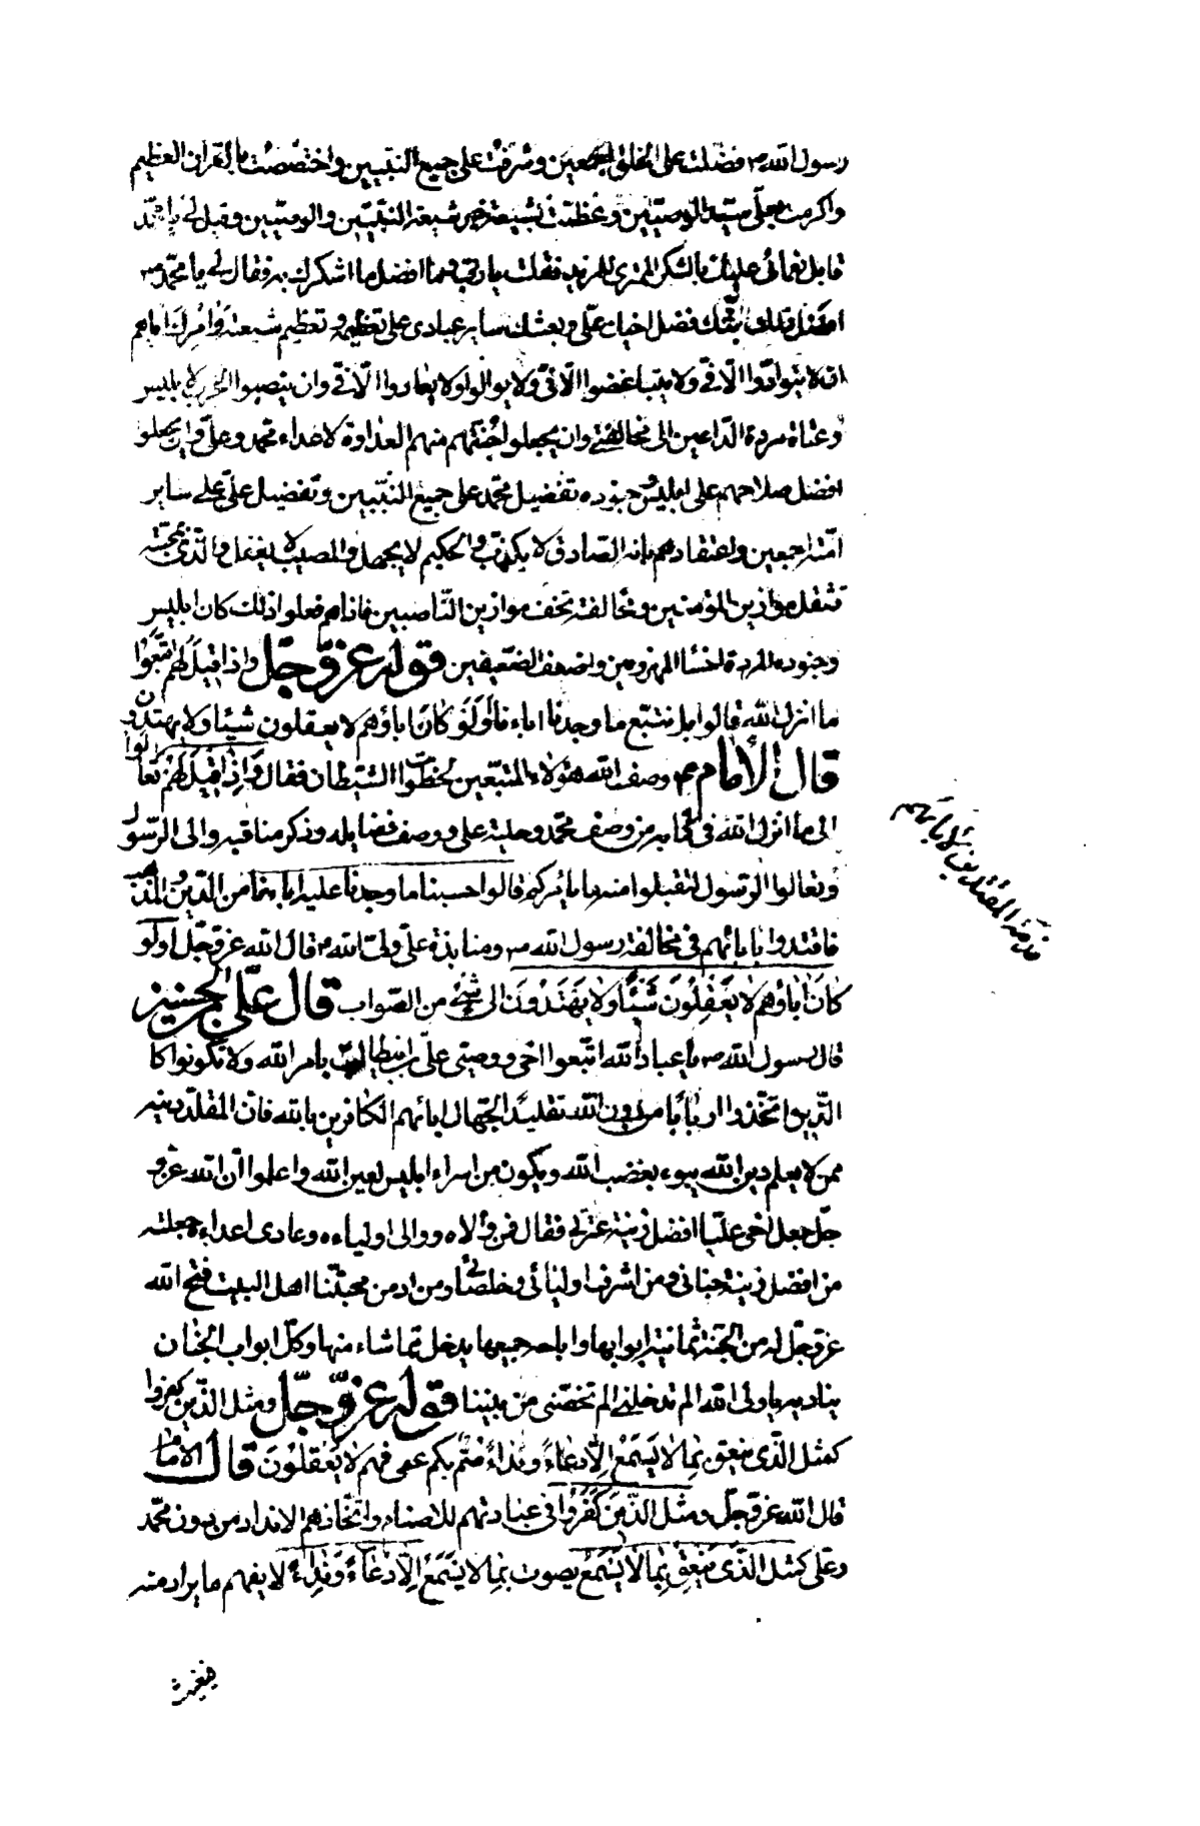 رسول الله ص فضلت على الخلق اجمعين وشرفت على جميع النبيين واختصصت بالقران العظيم
واكرمت بعلي سيد الوصيين وعظمت بشيعته خير شيعة النبيين والوصيين وقيل لي يا محمد
قابل نعمائي عليك بالشكر الممتري للمزيد فقلت يا ربي وما افضل ما اشكرك به فقال لي يا محمد ص
افضل ذلك بثك فضل اخيك علي وبعثك ساير عبادي على تعظيمه وتعظيم شيعته وامرك اياهم
ان لا يتوادوا الا في ولا يتباغضوا الا في ولا يوالوا ولا يعادوا الا في وان ينصبوا الحرب لابليس
وعتاة مردة الداعين الى مخالفتي وان يجعلوا جنتهم منهم العداوة لاعداء محمد وعلي وان يجعلوا
افضل سلاحهم على ابليس وجنوده تفضيل محمد على جميع النبيين وتفضيل علي على ساير
امته اجمعين واعتقادهم بانه الصادق لا يكذب والحكيم لا يجهل والمصيب لا يغفل والذي بمحبته
تثقل موازين المؤمنين ومخالفته تخف موازين الناصبين فاذا هم فعلوا ذلك كان ابليس
وجنوده المردة اخسا المهزومين واضعف الضعيفين قوله عز وجل واذا قيل لهم اتبعوا
ما انزل الله قالوا بل نتبع ما وجدنا اباءنا اولو كان اباؤهم لا يعقلون شيئا ولا يهتدون
قال الامام ع وصف الله هؤلاء المتبعين لخطوات الشيطان فقال واذا قيل لهم تعالوا
الى ما انزل الله في كتابه من وصف محمد وحلية علي ووصف فضايله وذكر مناقبه والى الرسول
وتعالوا الى الرسول لتقبلوا منه ما يامركم قالوا حسبنا ما وجدنا عليه اباءنا من الدين والمذهب
فاقتدوا بابائهم في مخالفة رسول الله ص ومنابذة علي ولي الله قال الله عز وجل اولو
كان اباؤهم لا يعقلون شيئا ولا يهتدون الى شئ من الصواب قال علي بن الحسين
قال رسول الله ص يا عباد الله اتبعوا اخي ووصيي علي بن ابيطالب بامر الله ولا تكونوا كا
الذين اتخذوا اربابا من دون الله تقليدا لجهال ابائهم الكافرين بالله فان المقلد دينه
ممن لا يعلم دين الله يبوء بغضب الله ويكون من اسراء ابليس لعين الله واعلموا ان الله عز و
جل جعل اخي عليا افضل زينة عترتي فقال من والاه ووالى اولياءه وعادى اعداءه جعلته
من افضل زينة جناني ومن اشرف اوليائي وخلصائي ومن ادمن محبتنا اهل البيت فتح الله
عز وجل له من الجنة ثمانية ابوابها واباحه جميعها يدخل مما شاء منها وكل ابواب الجنان
يناديه يا ولي الله الم تدخلني الم تخصني من بيننا قوله عز وجل ومثل الذين كفروا
كمثل الذي ينعق بما لا يسمع الا دعاء ونداء صم بكم عمي فهم لا يعقلون قال الامام
قال الله عز وجل ومثل الذين كفروا في عبادتهم للاصنام واتخاذهم الانداد من دون محمد
وعلي كمثل الذي ينعق بما لا يسمع يصوت بما لا يسمع الا دعاء ونداء لا يفهم ما يراد منه
مذمة المقلدين لابائهم